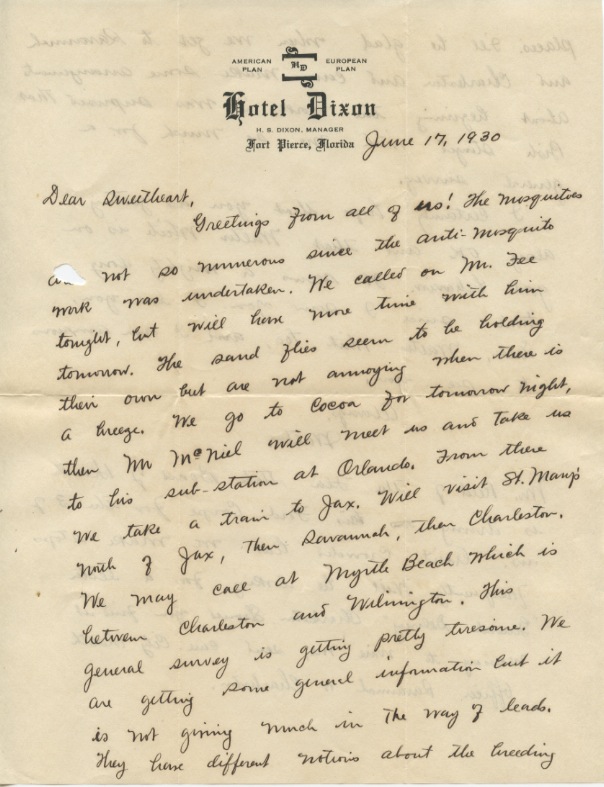 AMERICAN PLAN
HD
EUROPEAN PLAN
Hotel Dixon
H. S. DIXON, MANAGER
Fort Pierce, Florida
June 17, 1930
Dear Sweetheart,
Greetings from all of us! The mosquitoes
not so numerous since the anti-mosquito
work was undertaken. We called on Mr. Fee
tonight, but will have more time with him
tomorrow. The sand flies seem to be holding
their own but are not annoying when there is
a breeze. We go to Cocoa for tomorrow night,
then Mr McNiel will meet us and take us
to his sub-station at Orlando. From there
we take a train to Jax. Will visit St. Mary's
north of Jax, then Savannah, then Charleston.
We may call at Myrtle Beach which is
between Charleston and Wilmington. This
general survey is getting pretty tiresome. We
are getting some general information but it
is not giving much in the way of leads.
They have different notions about the breeding